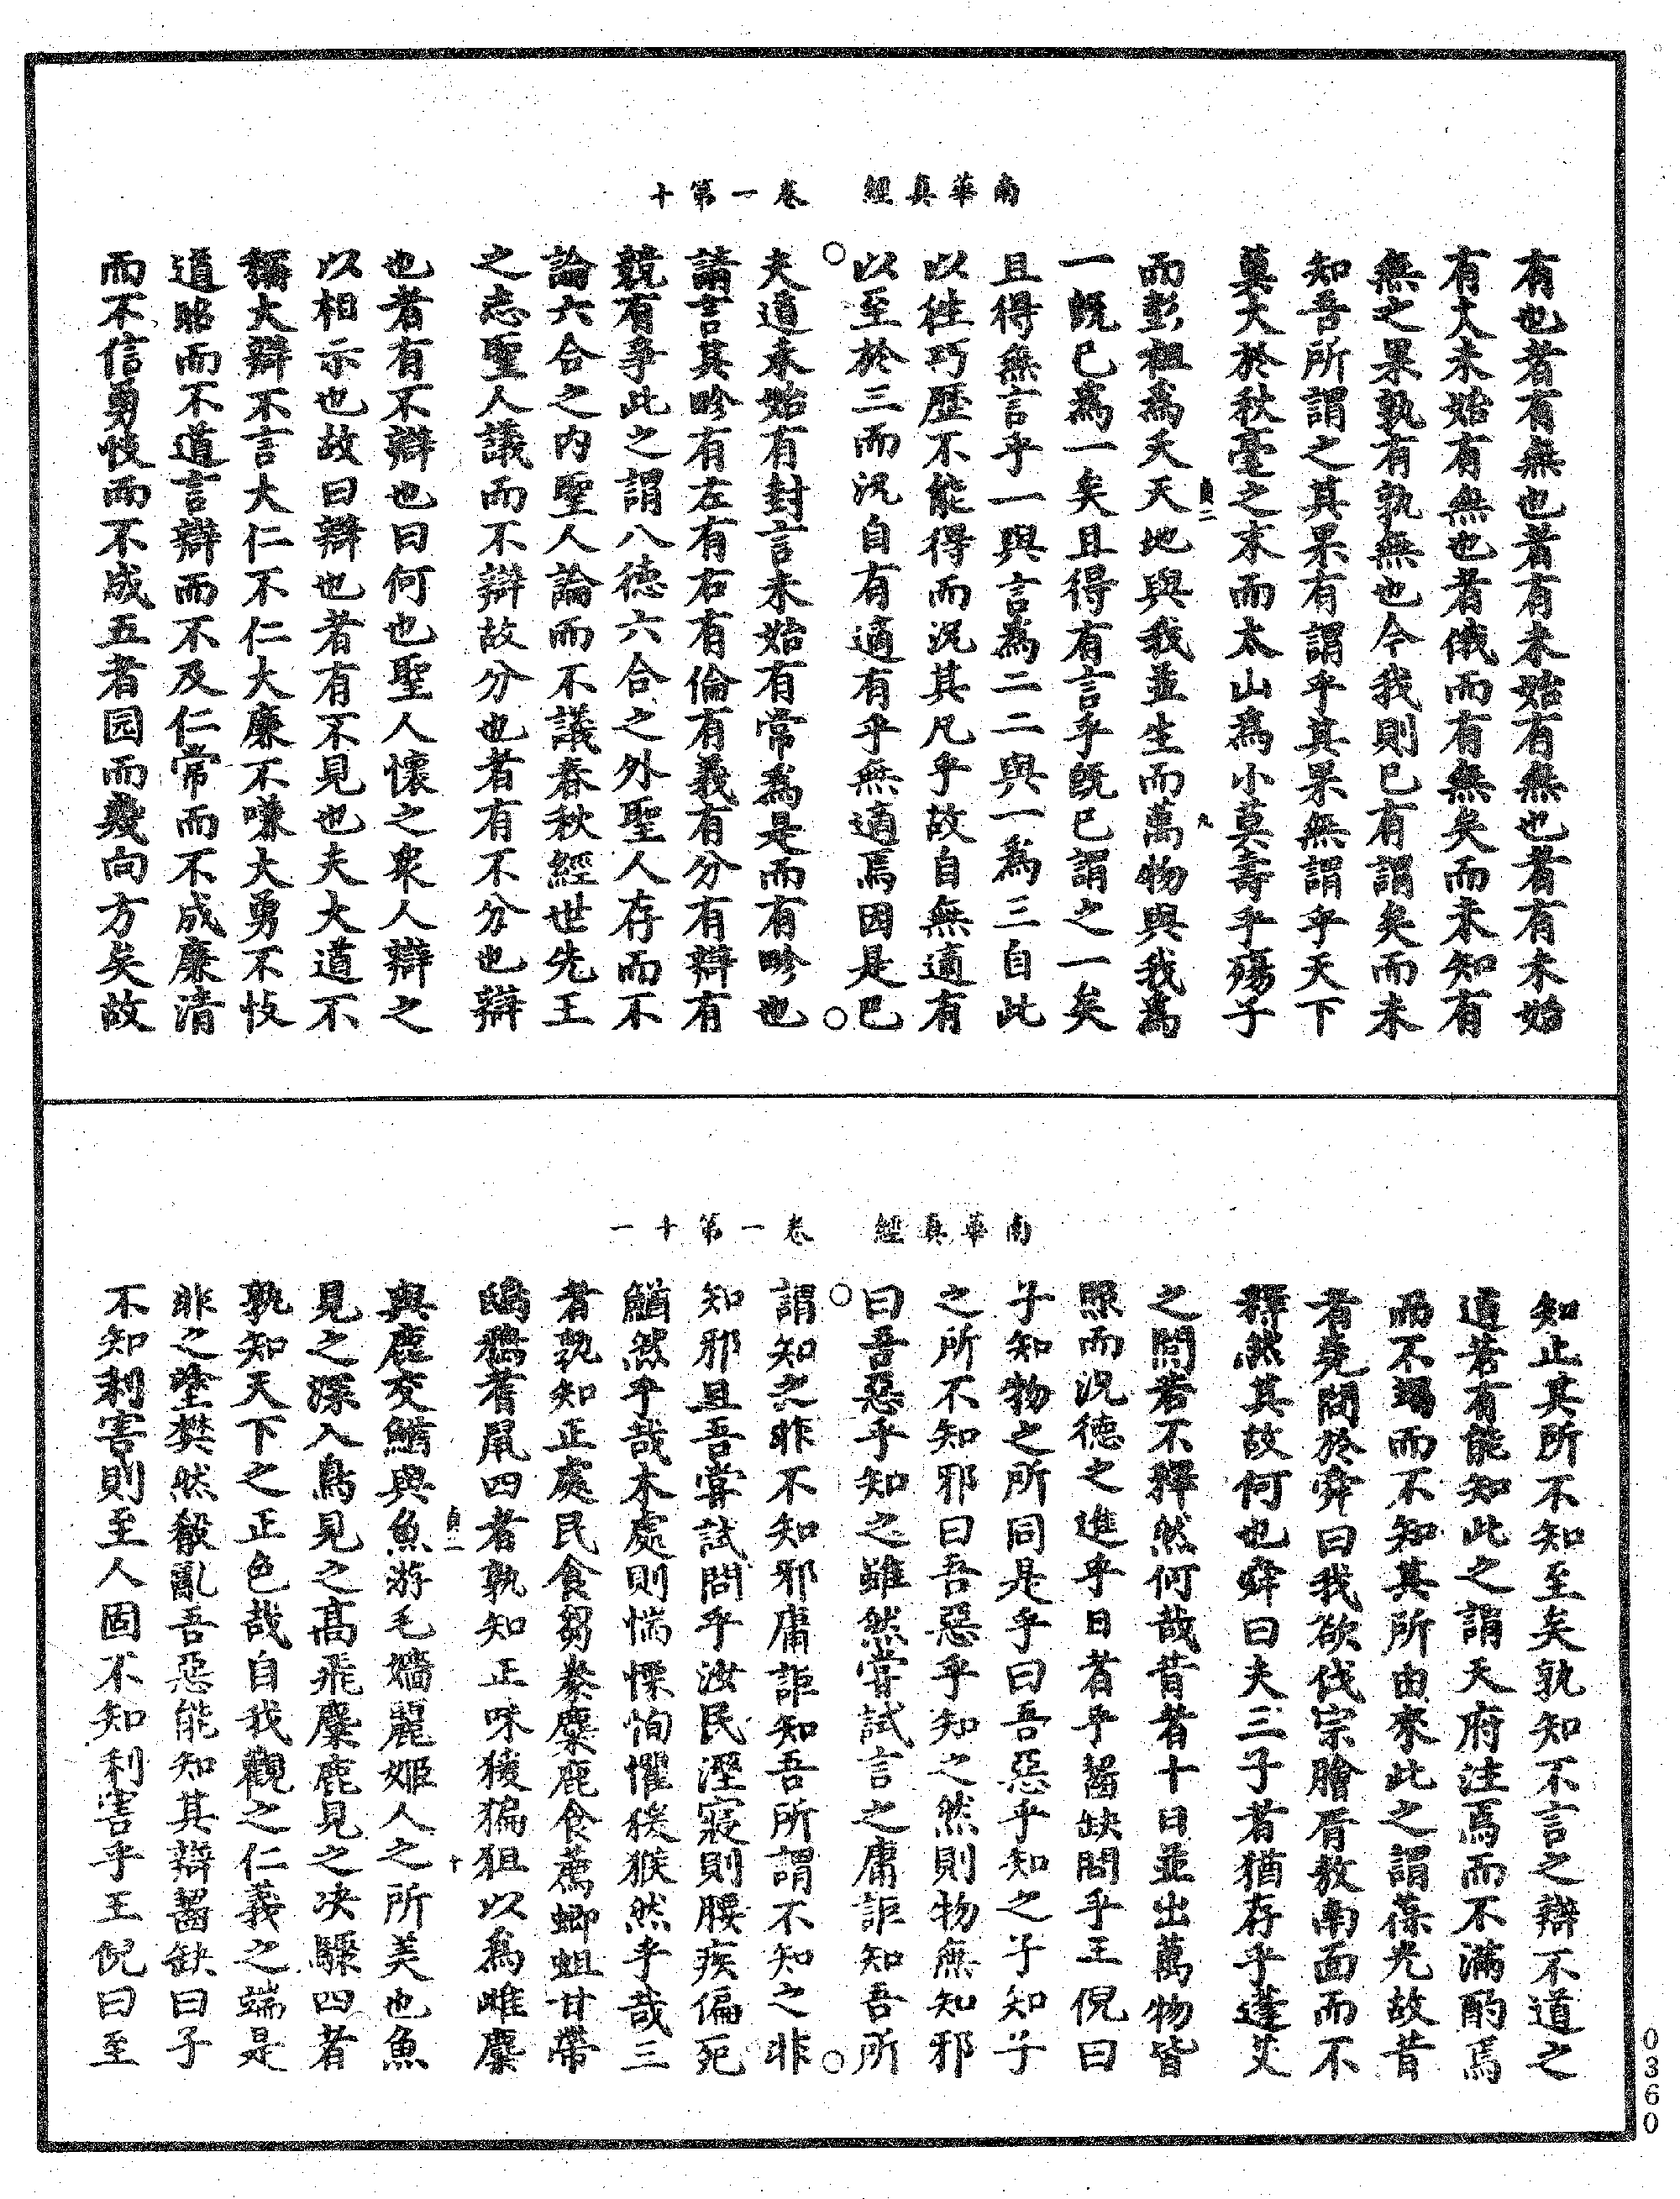 南華真經　卷一第十
有也者有無也者有未始有無也者有未始
有夫未始有無也者俄而有無矣而未知有
無之果孰有孰無也今我則已有謂矣而未
知吾所謂之其果有謂乎其果無謂乎天下
莫大於秋毫之末而太山為小莫壽乎殤子
而彭祖為夭天地與我並生而萬物與我為
一既已為一矣且得有言乎既已謂之一矣
且得無言乎一與言為二二與一為三自此
以往巧歷不能得而況其凡乎故自無適有
以至於三而況自有適有乎無適焉因是已
夫道未始有封言未始有常為是而有畛也
請言其畛有左有右有倫有義有分有辯有
競有爭此之謂八德六合之外聖人存而不
論六合之內聖人論而不議春秋經世先王
之志聖人議而不辯故分也者有不分也辯
也者有不辯也曰何也聖人懷之衆人辯之
以相示也故曰辯也者有不見也夫大道不
稱大辯不言大仁不仁大廉不嗛大勇不忮
道昭而不道言辯而不及仁常而不成廉清
而不信勇忮而不成五者园而幾向方矣故
南華真經　卷一第十一
知止其所不知至矣孰知不言之辯不道之
道若有能知此之謂天府注焉而不滿酌焉
而不竭而不知其所由來此之謂葆光故昔
者堯問於舜曰我欲伐宗膾胥敖南面而不
釋然其故何也舜曰夫三子者猶存乎蓬艾
之間若不釋然何哉昔者十日並出萬物皆
照而況德之進乎日者乎齧缺問乎王倪曰
子知物之所同是乎曰吾惡乎知之子知子
之所不知邪曰吾惡乎知之然則物無知邪
曰吾惡乎知之雖然嘗試言之庸詎知吾所
謂知之非不知邪庸詎知吾所謂不知之非
知邪且吾嘗試問乎汝民溼寢則腰疾偏死
鰌然乎哉木處則惴慄恂懼猨猴然乎哉三
者孰知正處民食芻豢麋鹿食薦蝍蛆甘帶
鴟鴉耆鼠四者孰知正味猨猵狙以為雌麋
與鹿交鰌與魚游毛嬙麗姬人之所美也魚
見之深入鳥見之高飛麋鹿見之决驟四者
孰知天下之正色哉自我觀之仁義之端是
非之塗樊然殽亂吾惡能知其辯齧缺曰子
不知利害則至人固不知利害乎王倪曰至
0360